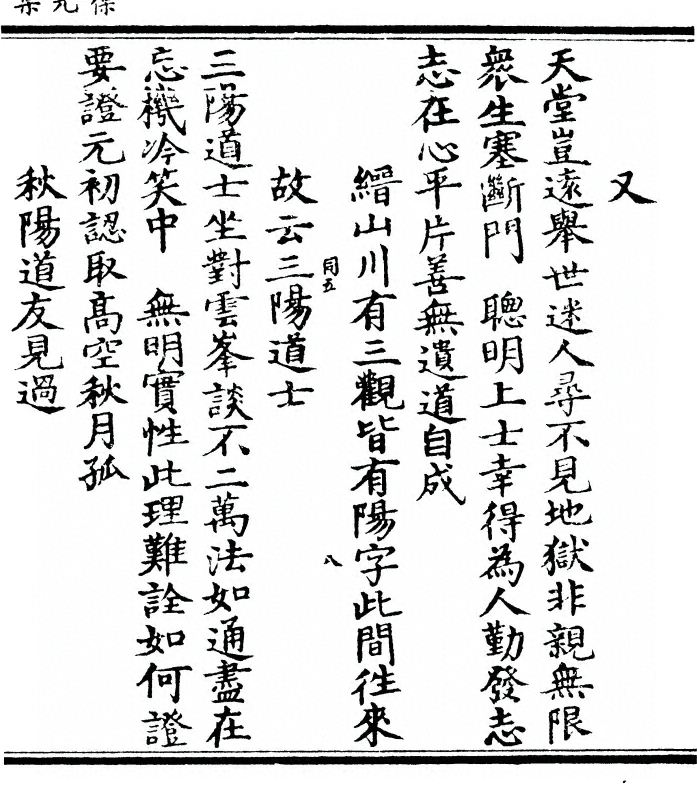 又
天堂豈遠舉世迷人尋不見地獄非親無限
衆生塞斷門　聰明上士幸得為人勤發志
志在心平片善無遺道自成
縉山川有三觀皆有陽字此間徃來
同五
八
故云三陽道士
三陽道士坐對雲峯談不二萬法如通盡在
忘機冷笑中　無明實性此理難詮如何證
要證元初認取高空秋月孤
秋陽道友見過